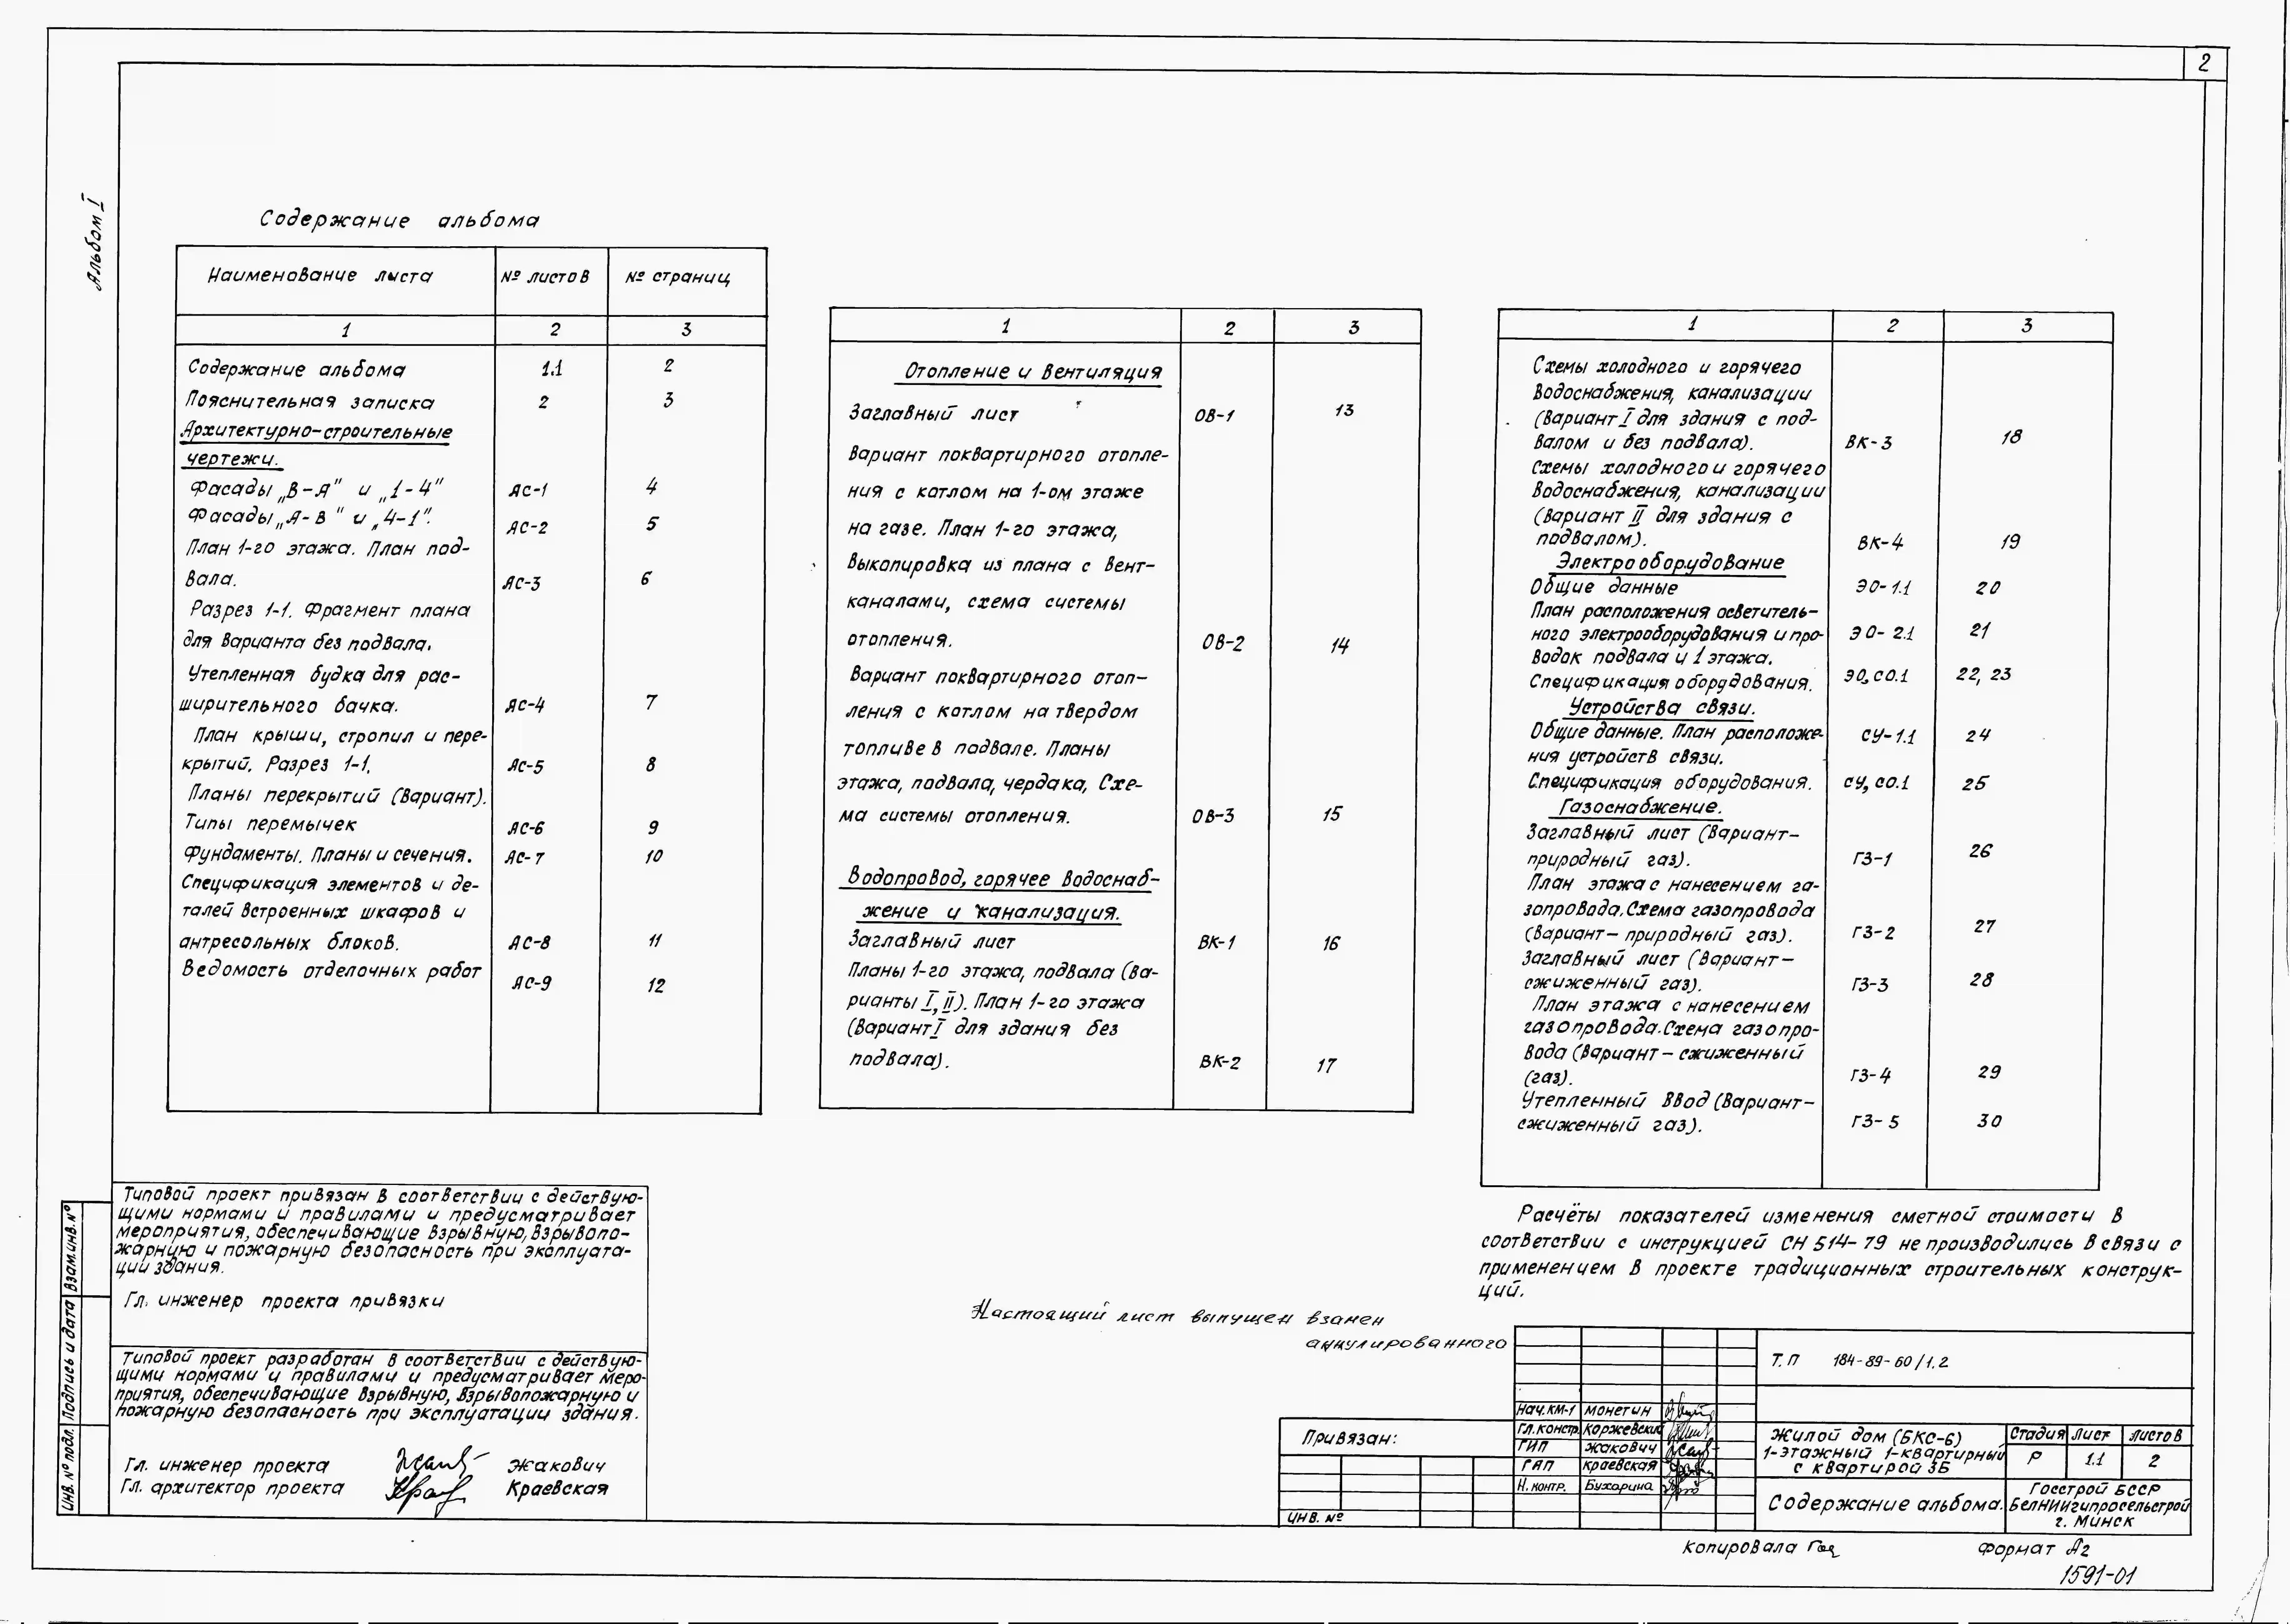 2
Альбом I
Содержание альбома
Наименование листа № листов № страниц
1 2 3
Содержание альбома 1.1 2
Пояснительная записка 2 3
Архитектурно-строительные
чертежи.
Фасады „В-А" и „1-4" АС-1 4
Фасады „А-В" и „4-1". АС-2 5
План 1-го этажа. План под-
вала. АС-3 6
Разрез 1-1. Фрагмент плана
для варианта без подвала.
Утепленная будка для рас-
ширительного бачка. АС-4 7
План крыши, стропил и пере-
крытий. Разрез 1-1. АС-5 8
Планы перекрытий (вариант).
Типы перемычек АС-6 9
Фундаменты. Планы и сечения. АС-7 10
Спецификация элементов и де-
талей встроенных шкафов и
антресольных блоков. АС-8 11
Ведомость отделочных работ АС-9 12
1 2 3
Отопление и вентиляция
Заглавный лист ОВ-1 13
Вариант поквартирного отопле-
ния с котлом на 1-ом этаже
на газе. План 1-го этажа,
выкопировка из плана с вент-
каналами, схема системы
отопления. ОВ-2 14
Вариант поквартирного отоп-
ления с котлом на твердом
топливе в подвале. Планы
этажа, подвала, чердака, Схе-
ма системы отопления. ОВ-3 15
Водопровод, горячее водоснаб-
жение и канализация.
Заглавный лист ВК-1 16
Планы 1-го этажа, подвала (ва-
рианты I, II). План 1-го этажа
(вариант I для здания без
подвала). ВК-2 17
1 2 3
Схемы холодного и горячего
водоснабжения, канализации
(вариант I для здания с под-
валом и без подвала). ВК-3 18
Схемы холодного и горячего
водоснабжения, канализации
(вариант II для здания с
подвалом). ВК-4 19
Электрооборудование
Общие данные ЭО-1.1 20
План расположения осветитель-
ного электрооборудования и про- ЭО-2.1 21
водок подвала и 1 этажа.
Спецификация оборудования. ЭО,СО.1 22, 23
Устройства связи.
Общие данные. План расположе- СУ-1.1 24
ния устройств связи.
Спецификация оборудования. СУ,СО.1 25
Газоснабжение.
Заглавный лист (вариант-
природный газ). ГЗ-1 26
План этажа с нанесением га-
зопровода. Схема газопровода
(вариант- природный газ). ГЗ-2 27
Заглавный лист (вариант-
сжиженный газ). ГЗ-3 28
План этажа с нанесением
газопровода. Схема газопро-
вода (вариант- сжиженный
(газ). ГЗ-4 29
Утепленный ввод (вариант-
сжиженный газ). ГЗ-5 30
Расчёты показателей изменения сметной стоимости в
соответствии с инструкцией СН 514-79 не производились в связи с
применением в проекте традиционных строительных конструк-
ций.
Типовой проект привязан в соответствии с действую-
щими нормами и правилами и предусматривает
мероприятия, обеспечивающие взрывную, взрывопо-
жарную и пожарную безопасность при эксплуата-
ции здания.
Гл. инженер проекта привязки
Типовой проект разработан в соответствии с действую-
щими нормами и правилами и предусматривает меро-
приятия, обеспечивающие взрывную, взрывопожарную и
пожарную безопасность при эксплуатации здания.
Гл. инженер проекта Жакович
Гл. архитектор проекта Краевская
Инв. № подл. Подпись и дата Взам.инв.№
Настоящий лист выпущен взамен
аннулированного
Привязан:
Инв. №
Нач.КМ-1 Монетин
Гл.констр. Коржевский
ГИП Жакович
ГАП Краевская
Н.контр. Бухарина
Т.П 184-89-60/1.2
Жилой дом (БКС-6)
1-этажный 1-квартирный
с квартирой 3Б
Стадия Лист Листов
Р 1.1 2
Содержание альбома.
Госстрой БССР
БелНИИгипросельстрой
г. Минск
Копировала
Формат А2
1591-01